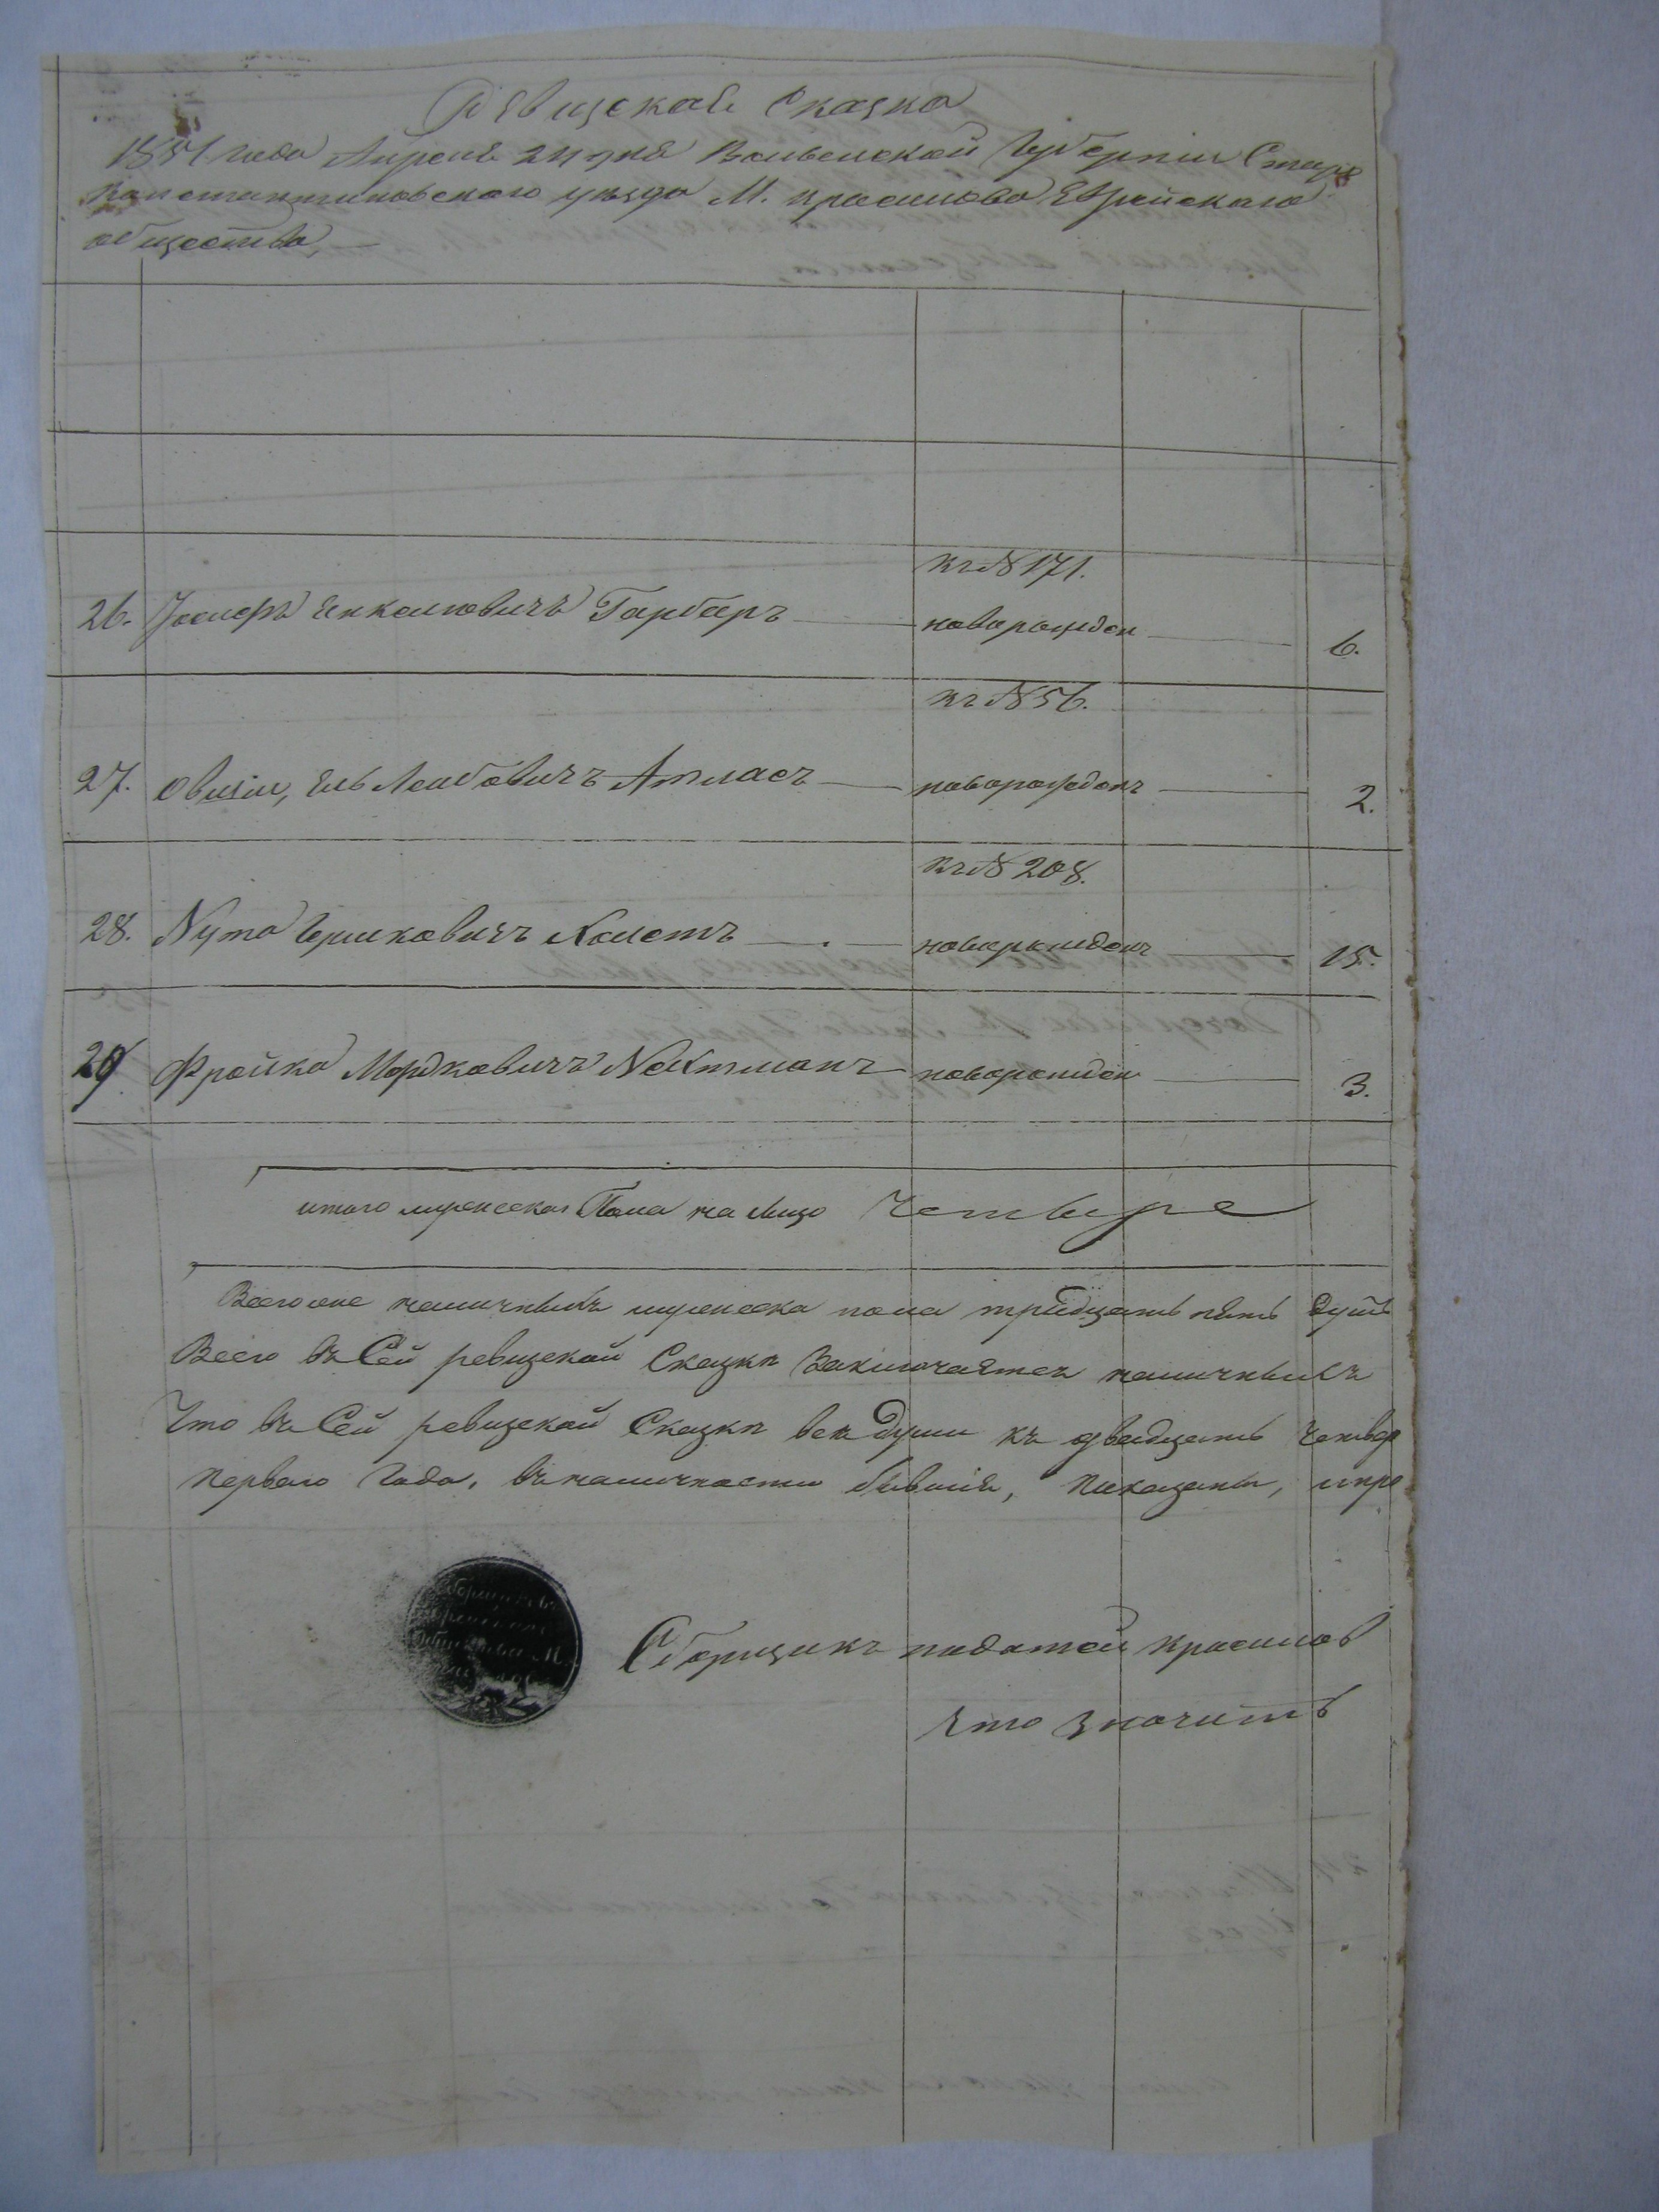 Ревизская Сказка
1851 года Апреля 24 дня Волынской Губернии Старо
Константиновского уезда М. Красилова Еврейского
общества,
къ № 171.
26. Иосифъ Янкелиовичъ Гарберъ новорожден 6.
къ № 56.
27. Лейбовичъ Атласъ новорожденъ 2.
къ № 208.
28. Нута Гершковичъ новорожденъ 15.
29. Фройка Мордковичъ новорожден 3.
итого мужеска Пола на лицо Четыре
Всего наличныхъ мужеска пола тридцать пять душъ
Всего въ Сей ревизской Сказки Заключается наличныхъ
Что въ Сей ревизской Сказки все души къ двадцать Четвер
Первого Года, въ наличности бывшия, показаны, и про
Сборщикъ податей Красилов
Что значитъ